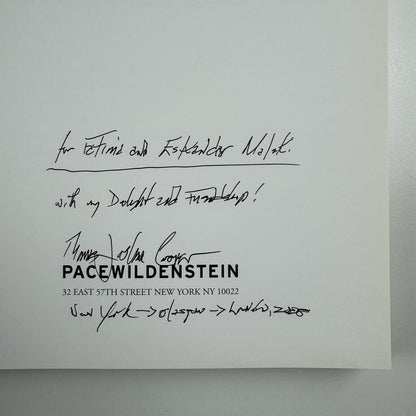 for Fatima and Eskandar Malek.
with my Delight and Friendship!
Thomas Joshua Cooper
PACEWILDENSTEIN
32 EAST 57TH STREET NEW YORK NY 10022
New York → Glasgow → London,